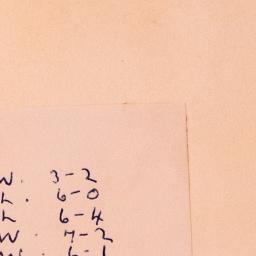 W. 3-2
L. 6-0
L 6-4
W. 7-2
W. 6-1